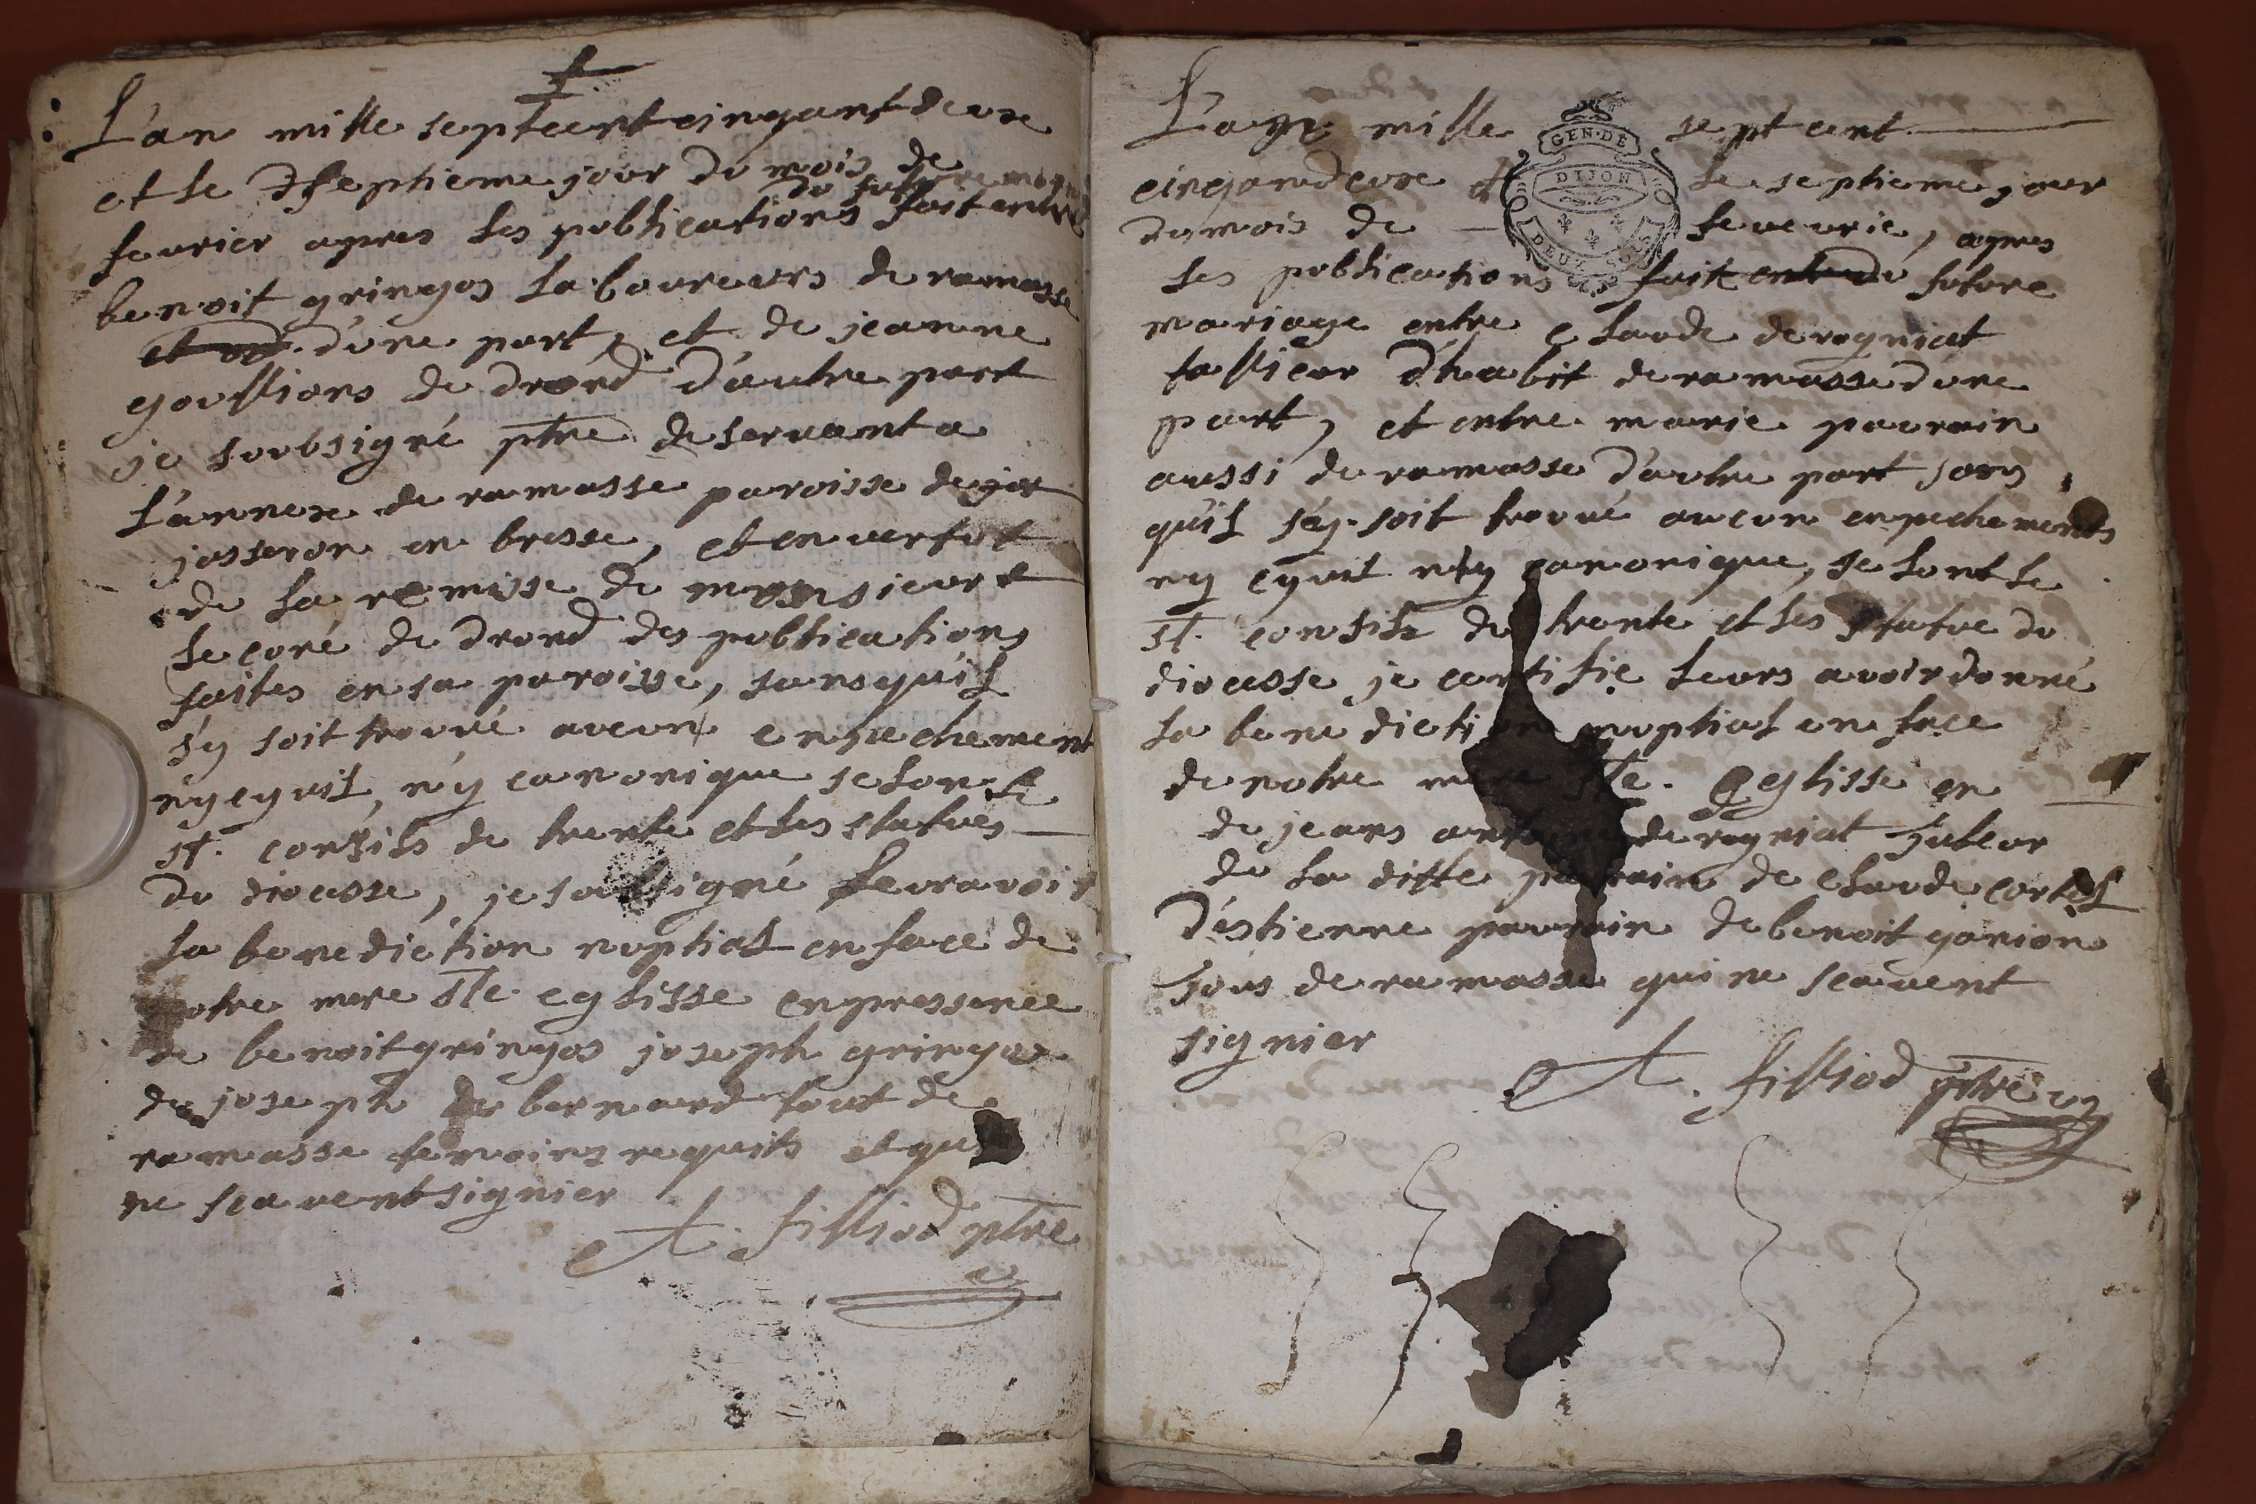 L'an mille septcent cinqant deux
et le septieme jour du mois de
du future mariage
feurier apres les publications fait entre
benoit gringos laboureurs de ramasse
et d'une part, et de jeanne
goullions de drond d'autre part
je soubsigné ptre deservant a
l'annexe de ramasse paroisse de
josseron en bresse, et en vertut
de la remisse de monsieur
le curé de drond des publications
faites en sa paroisse, sansquil
s'y soit trouvé aucun enpechement
n'y cyvil, n'y canonique selon le
st. consils de trente et les statues
du diocesse, je soubsigné leur avoir
la benediction nuptial en face de
notre mere ste. eglisse enpressence
de benoit gringos joseph gringos
de joseph bernard tout de
ramasse temoins requits et qui
ne scavent signier
A. filliod ptre
L'agn mille septcent
GEN. DE
DIJON
DEUX SOLS
cinqandeux et le septieme jour
du mois de feuvrie, apres
les publications fait entre du future
mariage entre claude derogniat
tallieur d'habit de ramasse d'une
part, et entre marie pauvrin
aussi de ramasse d'autre part sans
quil s'y soit trouvé aucun enpechements
ny cyvit n'y canonique, selont le
st. consile de trente et les statue du
diocesse je certifie leurs avoir donné
la benediction nuptial en face
de notre mere ste. eglisse en
de jeans antoine derogniat tuteur
de la ditte de claude
d'estienne de benoit
tous de ramasse qui ne scavent
signier
A. filliod ptre